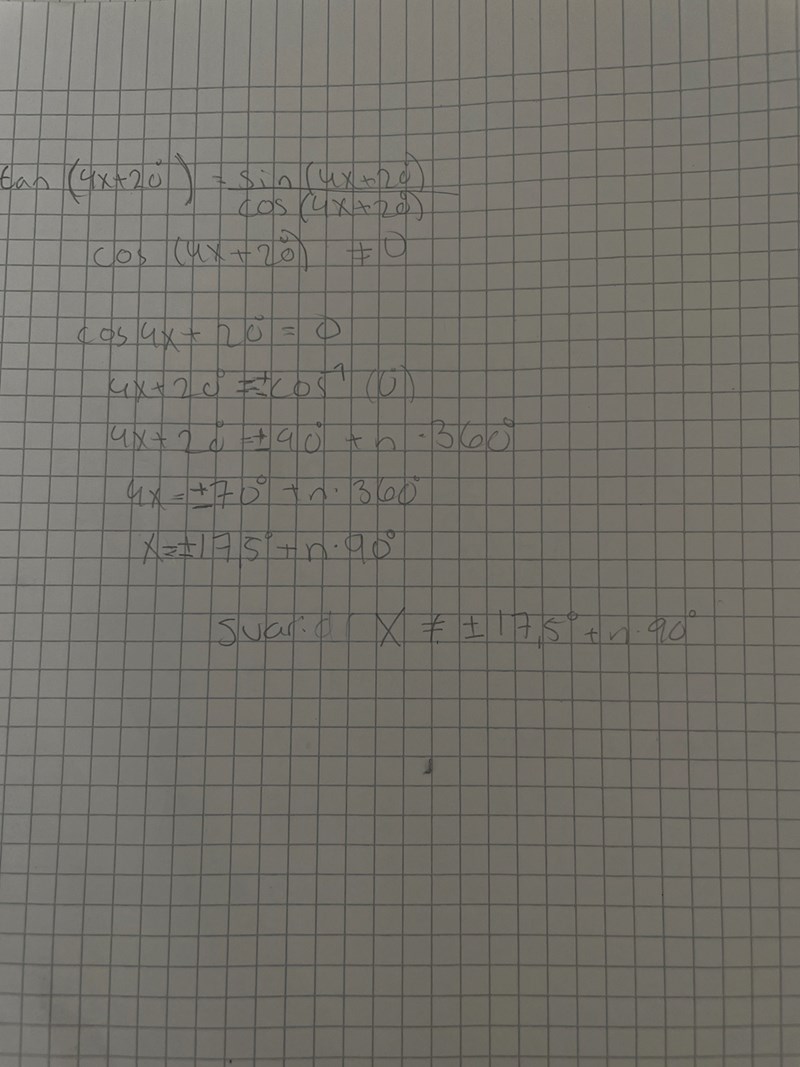 tan (4x+20°) = sin (4x+20°) / cos (4x+20°)
cos (4x+20°) ≠ 0
cos 4x+20° = 0
4x+20° = ±cos⁻¹ (0)
4x+20° = ±90° + n · 360°
4x = ±70° + n · 360°
x = ±17,5° + n · 90°
Svar: X ≠ ±17,5° + n · 90°